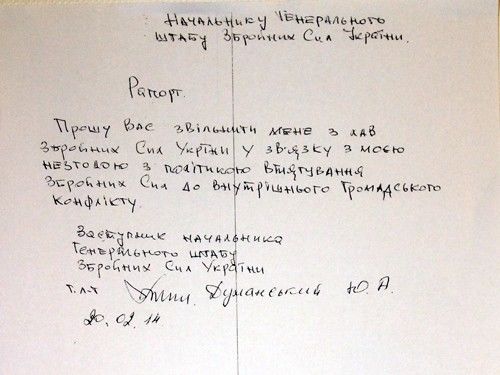 Начальнику Генерального
штабу Збройних Сил України.
Рапорт.
Прошу Вас звільнити мене з лав
Збройних Сил Укрїни у зв'язку з моєю
незгодою з політикою втягування
Збройних Сил до внутрішнього громадського
конфлікту.
Заступник начальника
Генерального штабу
Збройних Сил України
г.л-т Думанський Ю. А.
20.02.14